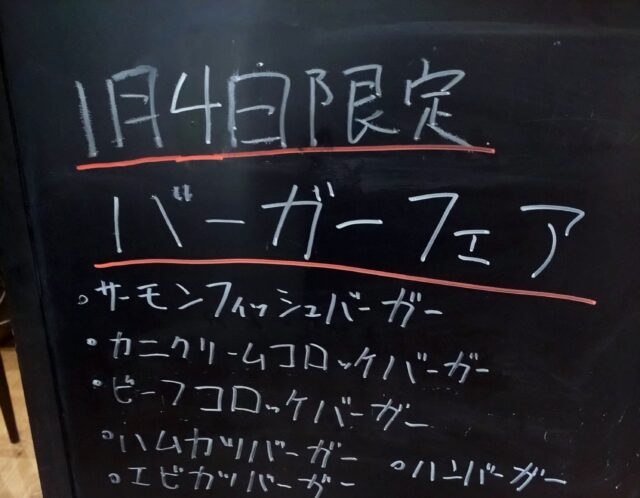 1月4日限定
バーガーフェア
。サーモンフィッシュバーガー
。カニクリームコロッケバーガー
。ビーフコロッケバーガー
。ハムカツバーガー
。エビカツバーガー
。ハンバーガー